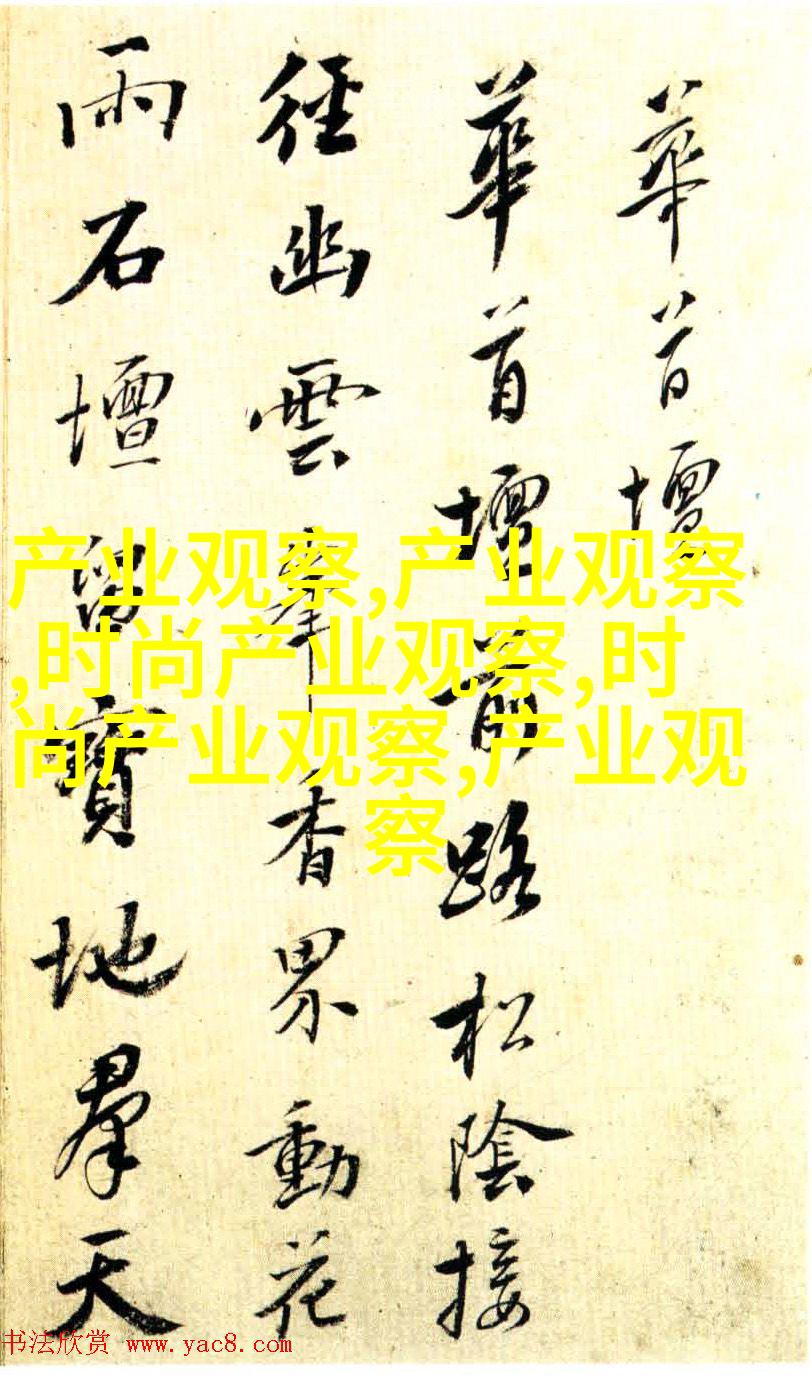 華首壇
華首壇前路松陰接
徑幽雲牽香界動花
雨石壇留寶地群天
产业观察,产业观察
,时尚产业观察,时
尚产业观察,产业观
察
书法欣赏 www.yac8.com